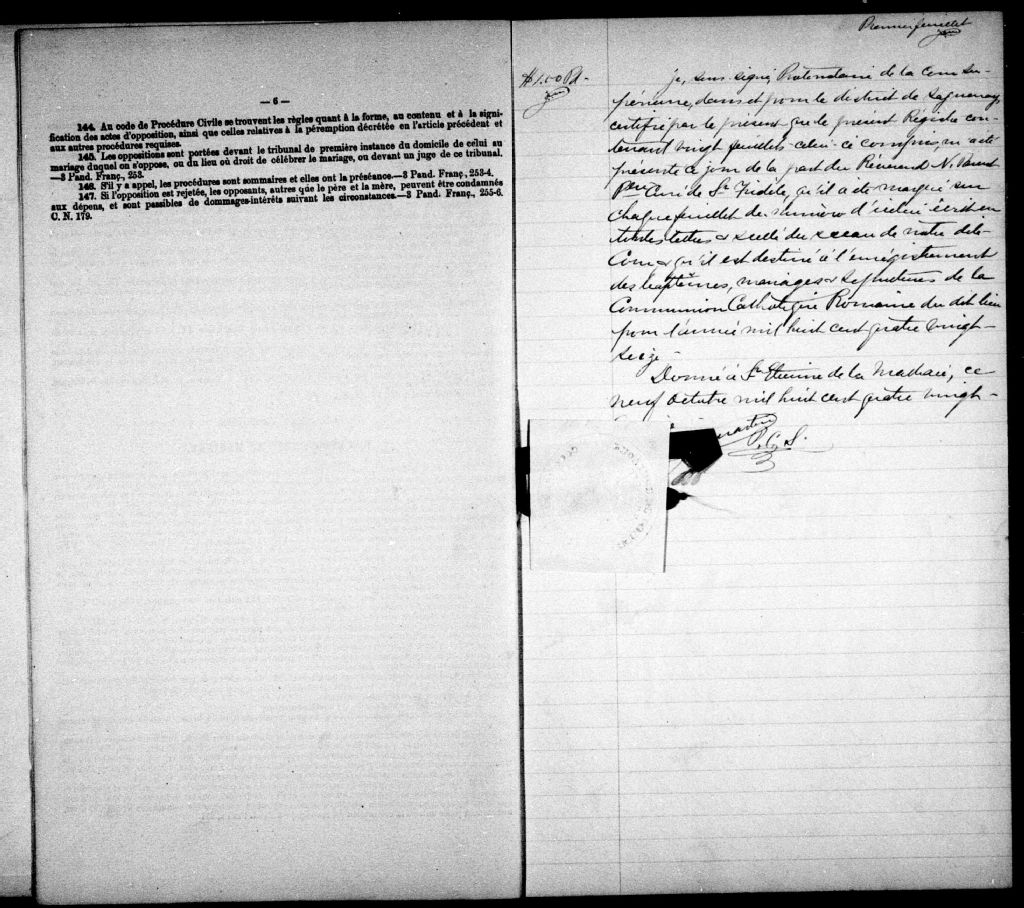 — 6 —
144. Au code de Procédure Civile se trouvent les règles quant à la forme, au contenu et à la signi-
fication des actes d'opposition, ainsi que celles relatives à la péremption décrétée en l'article précédent et
aux autres procédures requises.
145. Les oppositions sont portées devant le tribunal de première instance du domicile de celui au
mariage duquel on s'oppose, ou du lieu où droit de célébrer le mariage, ou devant un juge de ce tribunal.
—3 Pand. Franç., 253.
146. S'il y a appel, les procédures sont sommaires et elles ont la préséance.—3 Pand. Franç., 253-4.
147. Si l'opposition est rejetée, les opposants, autres que le père et la mère, peuvent être condamnés
aux dépens, et sont passibles de dommages-intérêts suivant les circonstances.—3 Pand. Franç., 255-6.
C. N. 179.
Premier feuillet
$1.50 Pd.
Je, sous signé, Protonotaire de la Cour Su-
périeure, dans et pour le district de Saguenay,
certifie par le présent que le présent Régistre con-
tenant vingt feuillets celui-ci compris, m'a été
présenté ce jour de la part du Révérend N.
Ptre Curé de St Fidèle, qu'il a été marqué sur
chaque feuillet du numéro d'icelui écrit en
toutes lettres & scellé du sceau de notre dite
Cour & qu'il est destiné à l'enrégistrement
des baptêmes, mariages & sépultures de la
Communion Catholique Romaine du dit lieu
pour l'année mil huit cent quatre vingt-
seize.
Donné à St Etienne de la Malbaie, ce
neuf Octobre mil huit cent quatre vingt-
P. C. S.